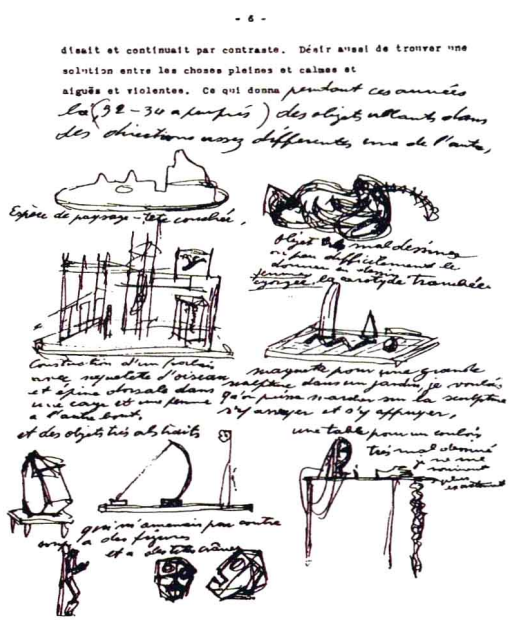 - 6 -
disait et continuait par contraste. Désir aussi de trouver une
solution entre les choses pleines et calmes et
aiguës et violentes. Ce qui donna pendant ces années
là (32-34 à peu près) des objets allants dans
des directions assez différentes une de l'autre,
Espèce de paysage - tête couchée,
objet mal dessiné
un peu difficilement le
donner en dessin
femme égorgée, la carotyde tranchée
Construction d'un palais
avec squelette d'oiseau
et épine dorsale dans
une cage et une femme
à l'autre bout.
maquette pour une grande
sculpture dans un jardin, je voulais
qu'on puisse marcher sur la sculpture
s'y asseoir et s'y appuyer,
et des objets très abstraits
une table pour un couloir
très mal dessiné
je ne me
souviens
plus
exactement
qui m'amenais par contre
à des figures
et à des têtes crânes